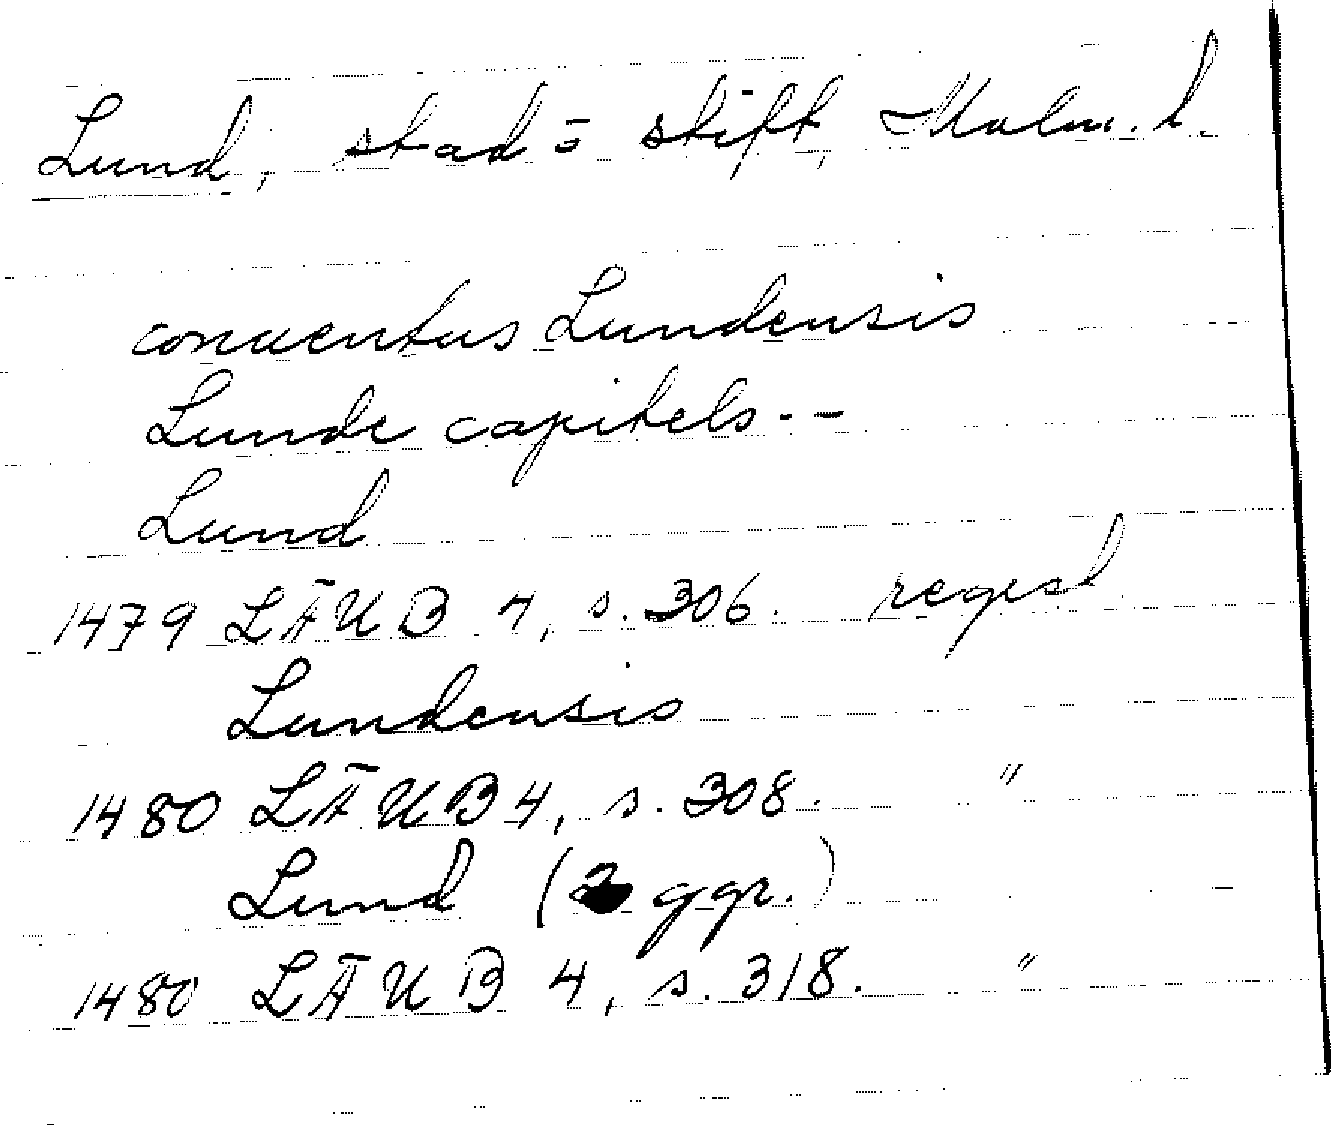 Lund, stad o stift, Malm. l.
conuentus Lundensis
Lunde capitels--
Lund
1479 LÄUB 4, s. 306. regest
Lundensis
1480 LÄUB 4, s. 308. "
Lund (2 ggr.)
1480 LÄUB 4, s. 318. "